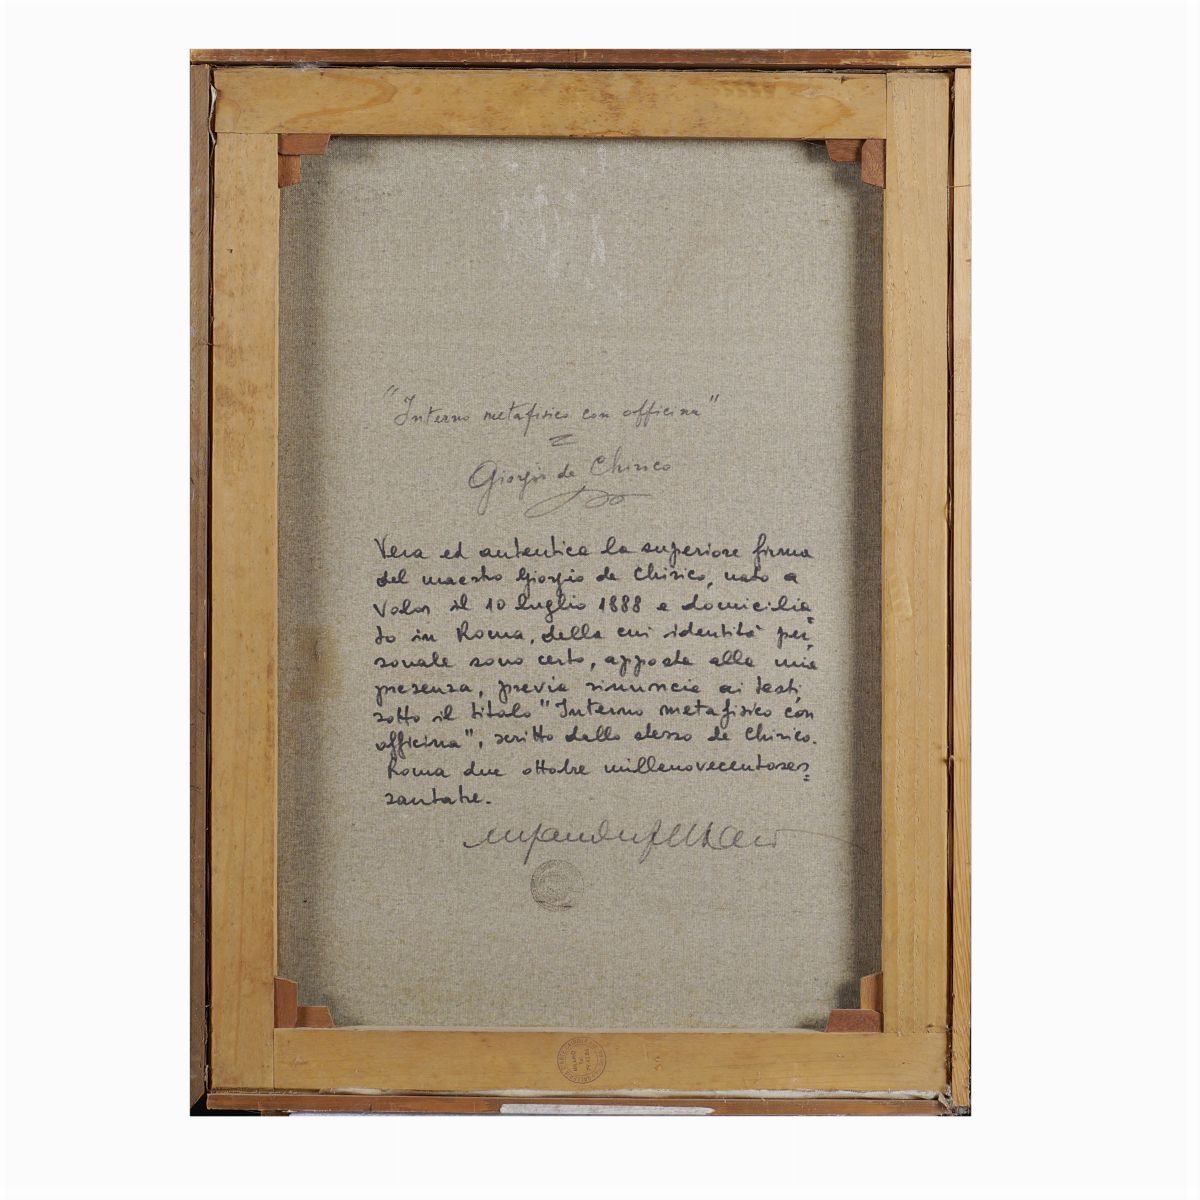 "Interno metafisico con officina"
=
Giorgio de Chirico
Vera ed autentica la superiore firma
del maestro Giorgio de Chirico, nato a
Volos il 10 luglio 1888 e domicilia=
to in Roma, della cui identità per=
sonale sono certo, apposta alla mia
presenza, previa rinuncia ai testi,
sotto il titolo "Interno metafisico con
officina", scritto dallo stesso de Chirico.
Roma due ottobre millenovecentoses=
santatre.